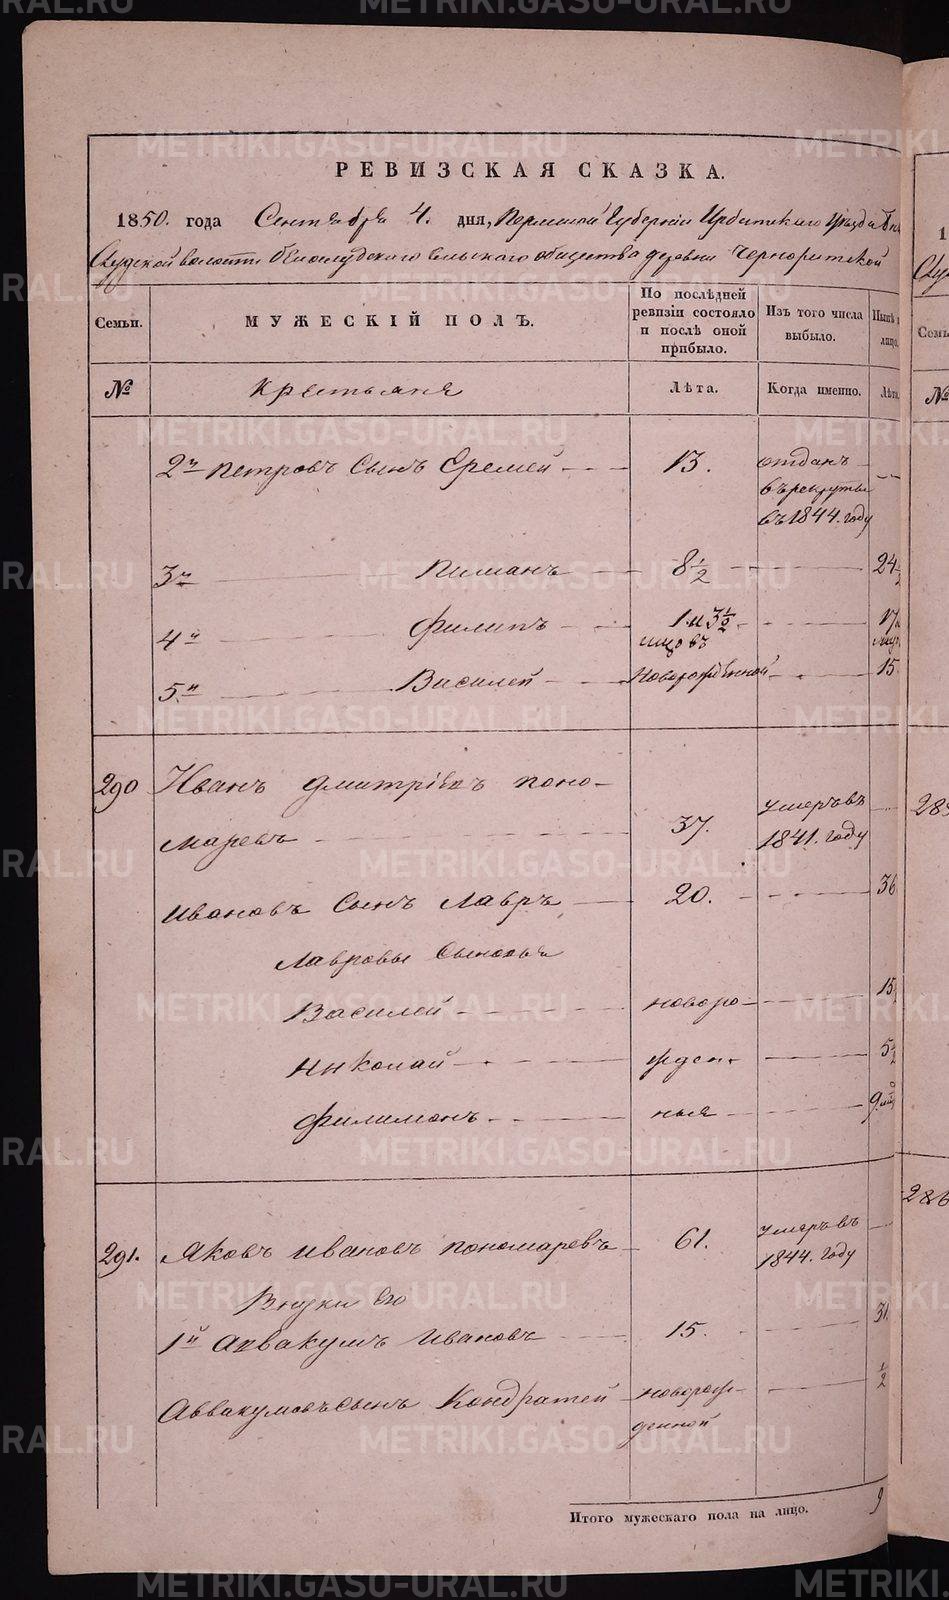 РЕВИЗСКАЯ СКАЗКА.
1850. года Сентября 4. дня, Пермской Губернии Ирбитскаго Уезда Бѣло
Слудской волости Белослудского сельского общества деревни Черноритской
Семьи.
МУЖЕСКІЙ ПОЛЪ.
По послѣдней ревизіи состояло и послѣ оной прибыло.
Изъ того числа выбыло.
Нынѣ на лицо.
№
Крестьяне
Лѣта.
Когда именно.
Лѣта.
2й Петровъ Сынъ Еремей 13. отданъ
въ рекруты
въ 1844. году
3й Пиманъ 8 1/2 24 1/2
4й Филипъ 1. и 3 1/2 17
мцовъ
5й Василей Новорожденной 15
290 Иванъ Дмитріевъ Поно-
маревъ 37. умеръ въ
1841. году
Ивановъ Сынъ Лавръ 20. 36
Лавровы Сыновья
Василей новоро- 15
Николай жден- 5 1/2
Филимонъ ныя 9 мц
291. Яковъ Ивановъ Пономаревъ 61. умеръ въ
1844. году
Внуки его
1й Аввакумъ Ивановъ 15. 31.
Аввакумовъ Сынъ Кондратей новорож- 1/2
денной
Итого мужескаго пола на лицо. 9
METRIKI.GASO-URAL.RU